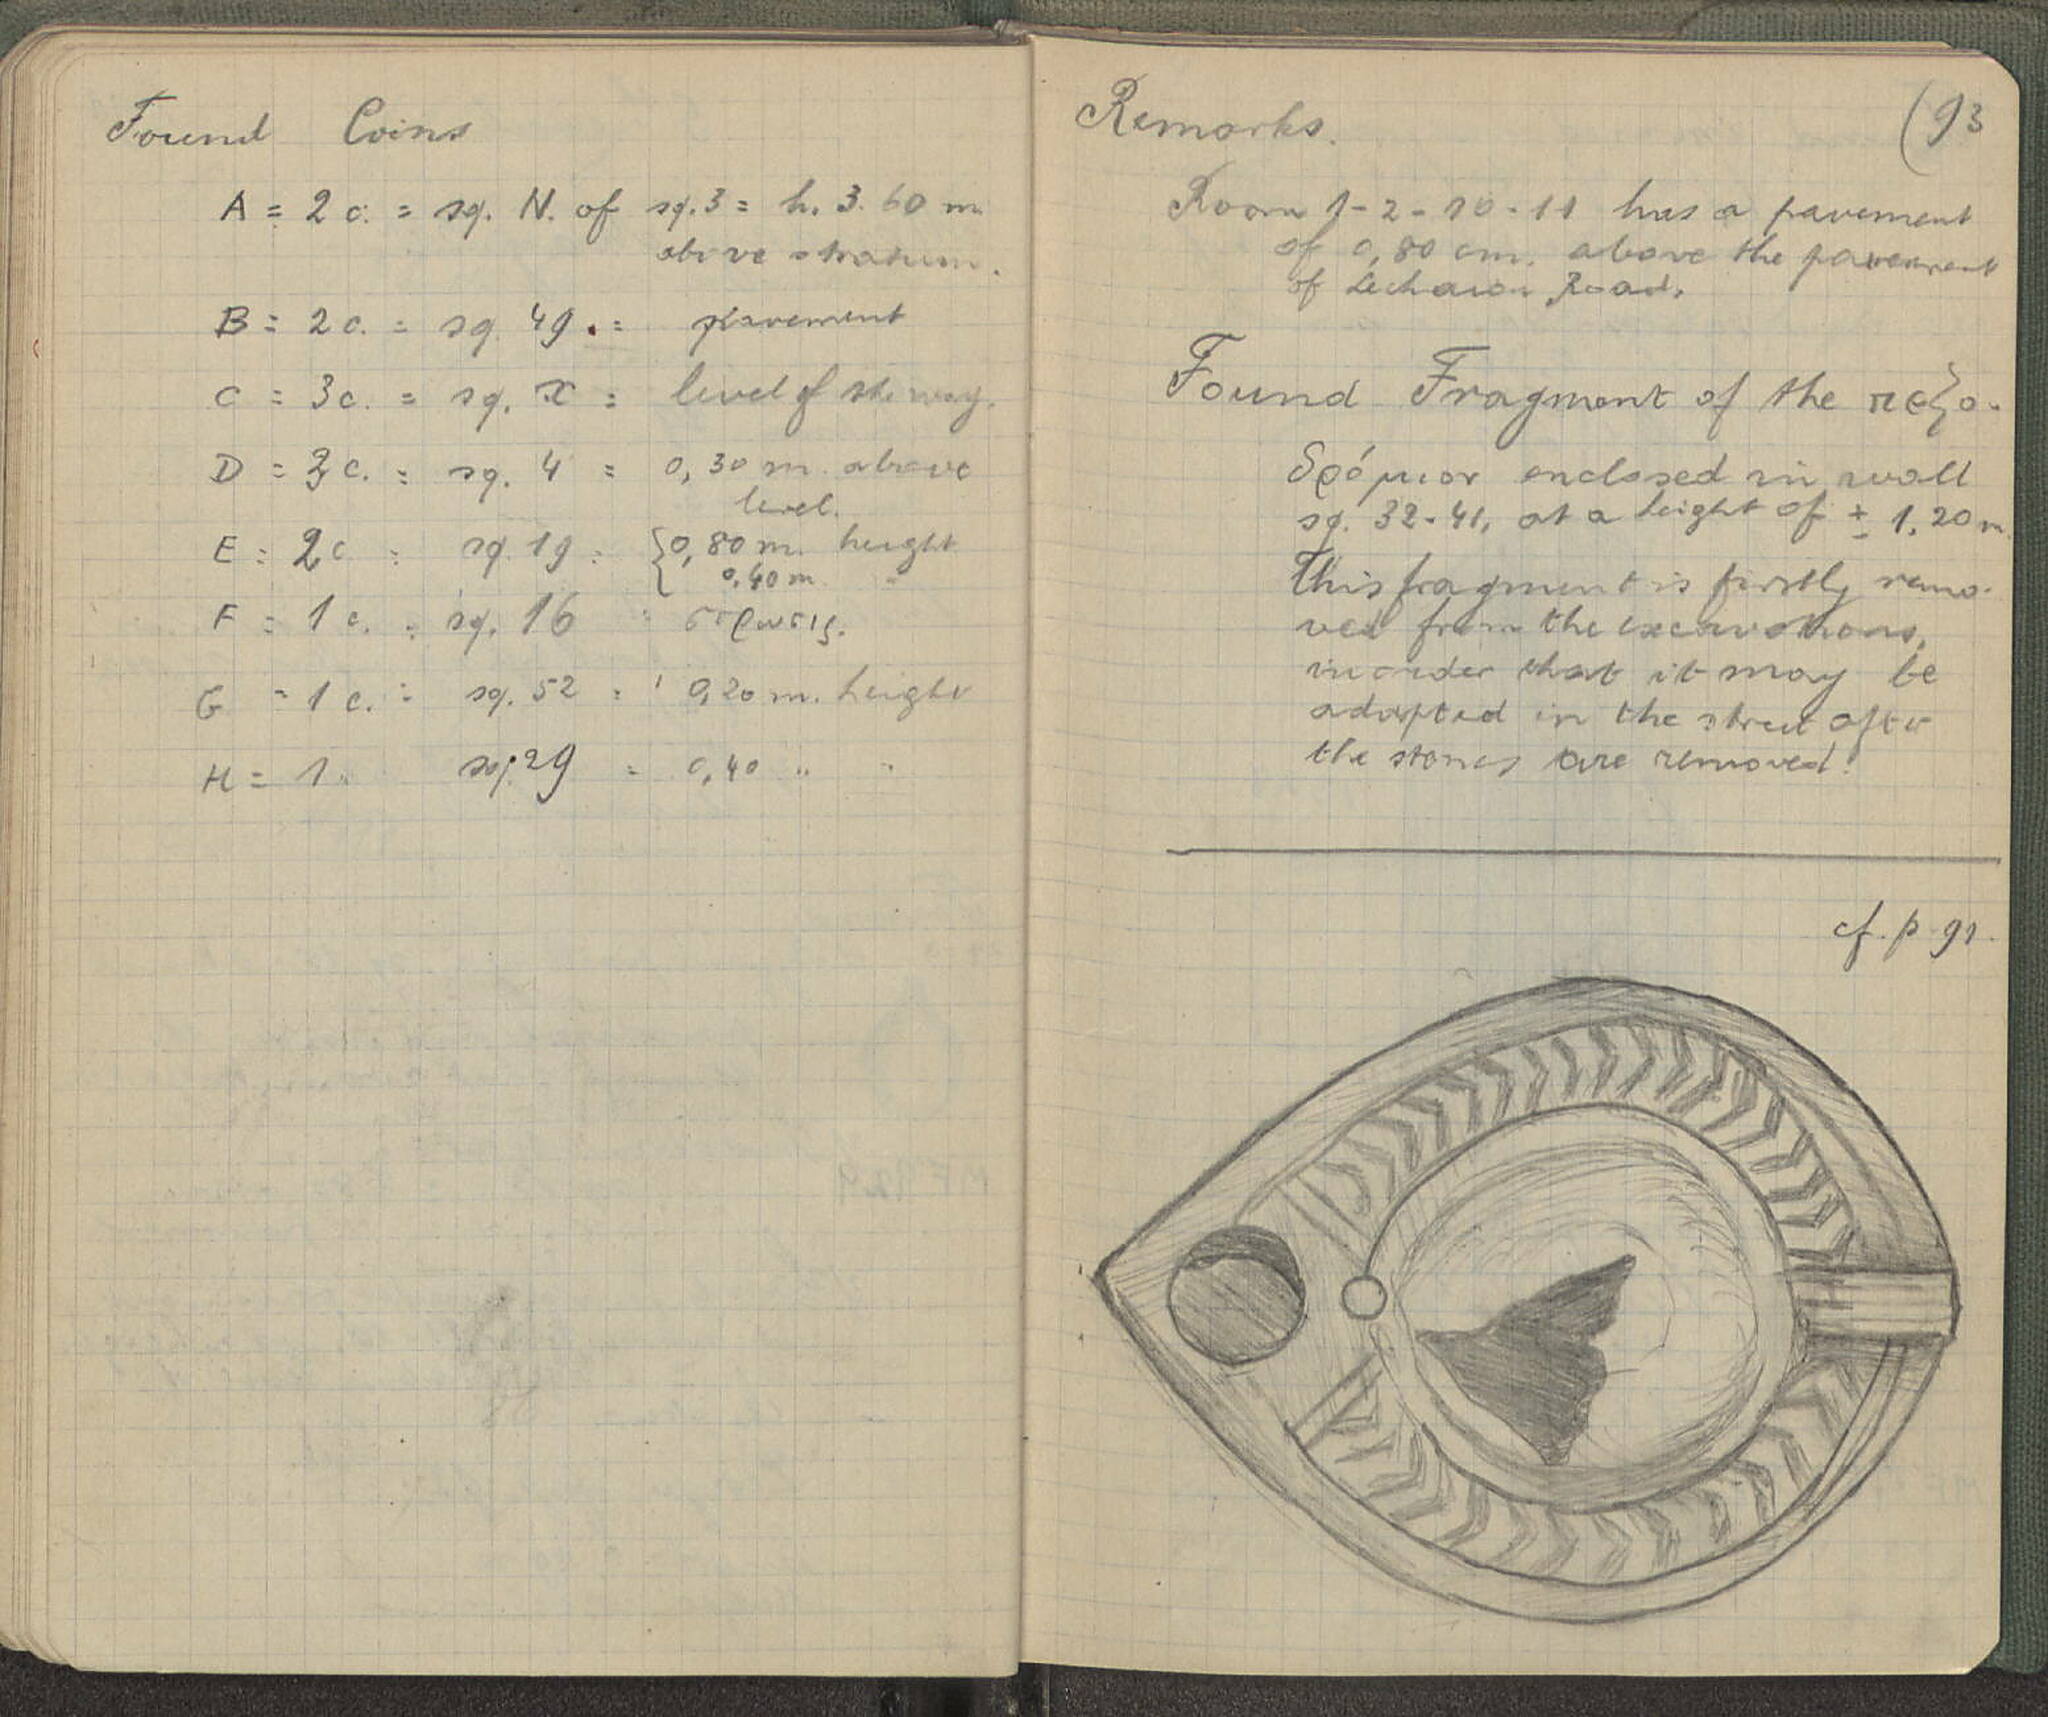 Found Coins
A = 2 c. = sq. N. of sq. 3 = h. 3.60 m.
above stratum.
B = 2 c. = sq. 49. = pavement
C = 3 c. = sq. x = level of the way.
D = 3 c. = sq. 4 = 0,30 m. above
level.
E = 2 c = sq. 19 = {0,80 m. height
0,40 m. "
F = 1 c. = sq. 16 = στρωσις.
G = 1 c. = sq. 52 = 0,20 m. height
H = 1 " sq. 29 = 0,40 " "
Remarks. (93
Room 1-2-10-11 has a pavement
of 0,80 cm. above the pavement
of Lechaion Road.
Found Fragment of the πεζο-
δρόμιον enclosed in wall
sq. 32-41, at a height of ± 1,20 m.
This fragment is firstly remo-
ved from the excavations,
in order that it may be
adapted in the street after
the stones are removed!
cf. p 91.